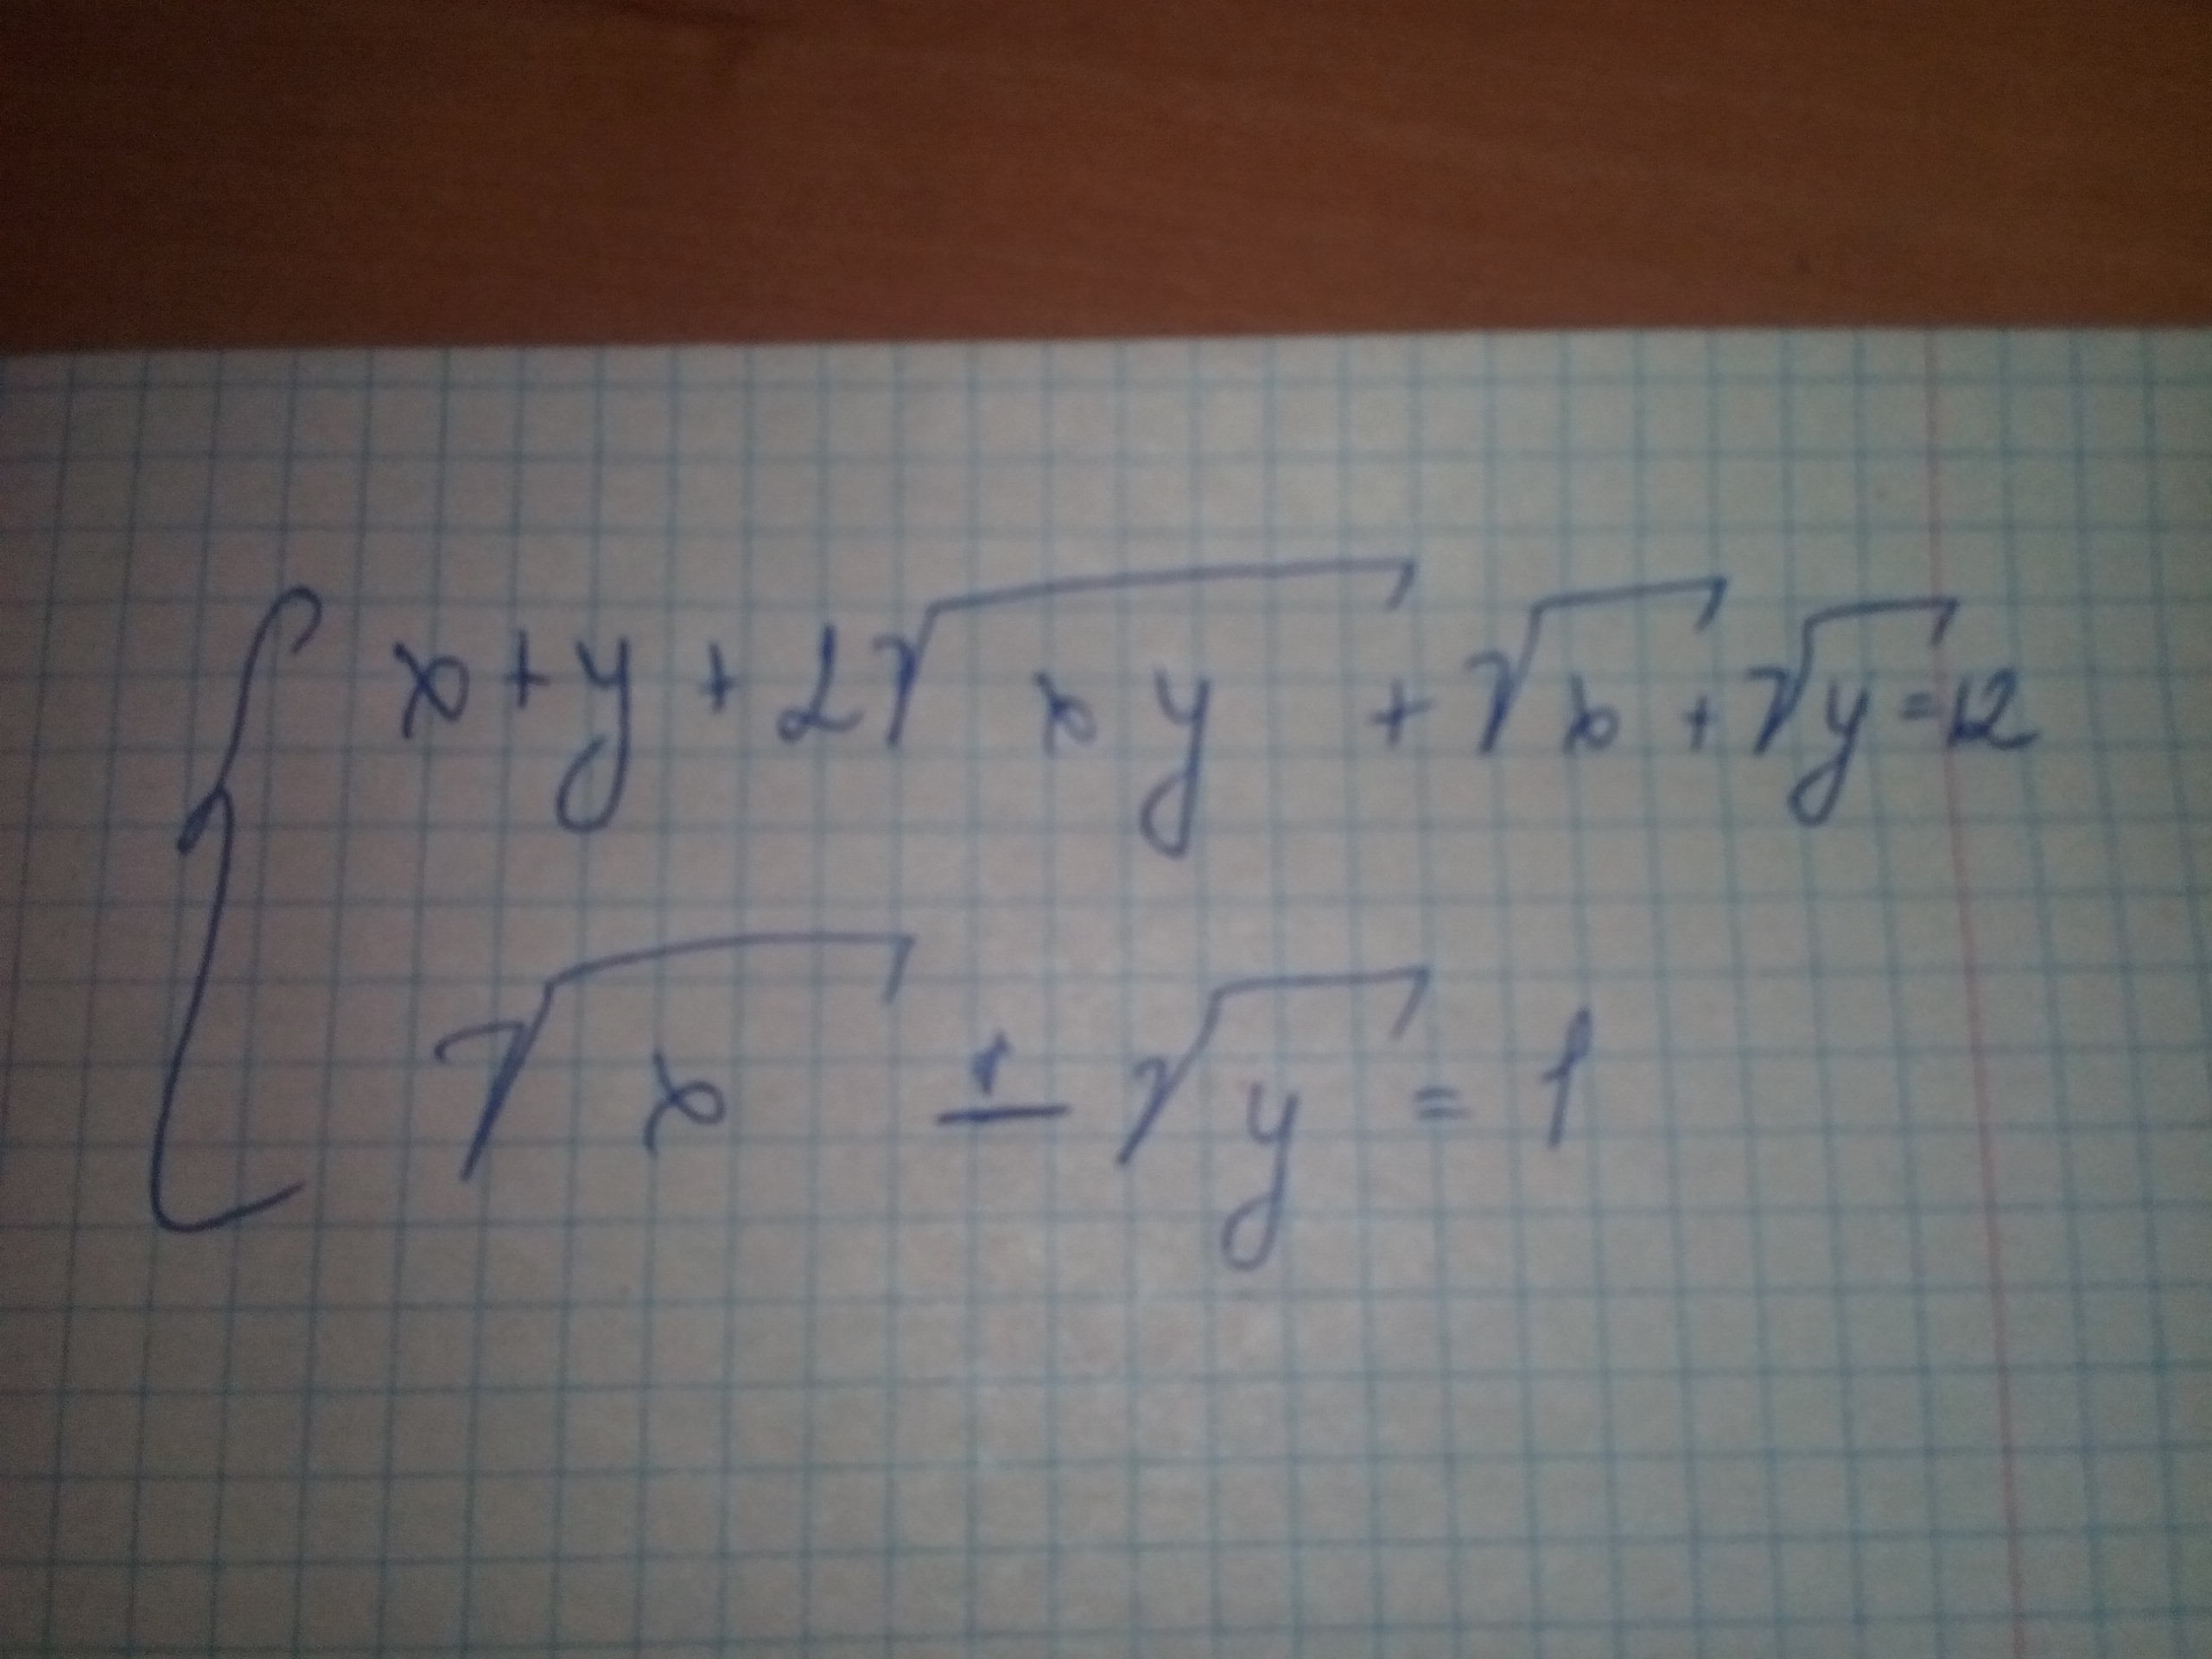 x+y+2√xy+√x+√y=12
√x±√y=1